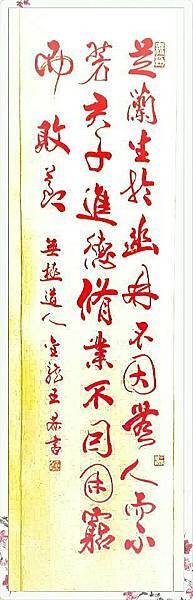 芝蘭生於幽林不因無人而不
芳君子進德脩業不因困窮
而敗節
無極道人金龍王恭書